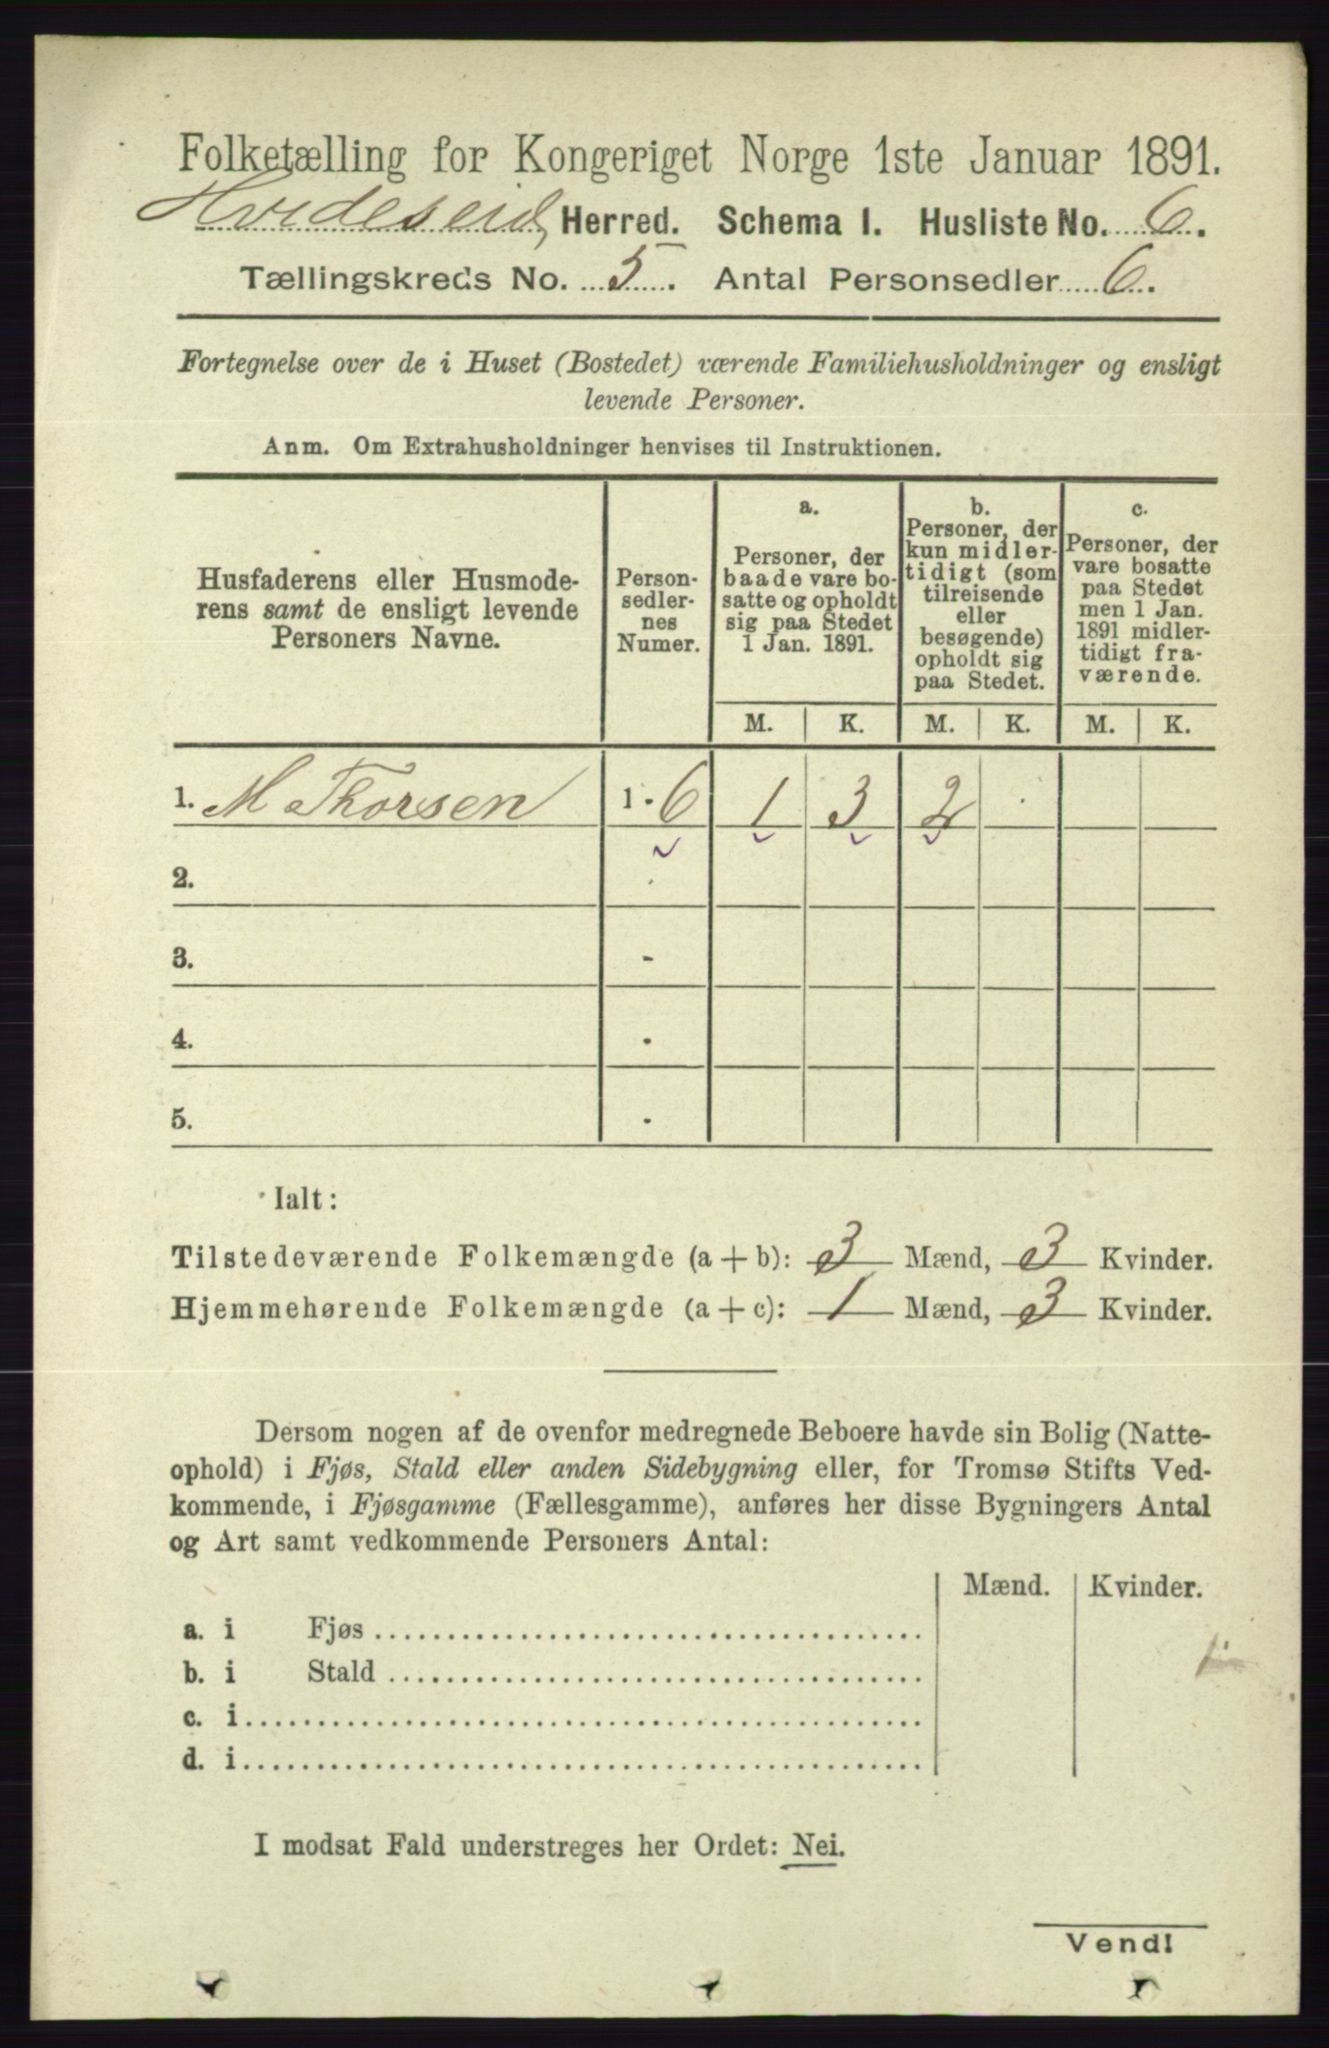 Folketælling for Kongeriget Norge 1ste Januar 1891.
Hvideseid Herred. Schema I. Husliste No. 6.
Tællingskreds No. 5. Antal Personsedler 6.
Fortegnelse over de i Huset (Bostedet) værende Familiehusholdninger og ensligt
levende Personer.
Anm. Om Extrahusholdninger henvises til Instruktionen.
Husfaderens eller Husmode-
rens samt de ensligt levende
Personers Navne.
Person-
sedler-
nes
Numer.
a.
Personer, der
baade vare bo-
satte og opholdt
sig paa Stedet
1 Jan. 1891.
b.
Personer, der
kun midler-
tidigt (som
tilreisende
eller
besøgende)
opholdt sig
paa Stedet.
c.
Personer, der
vare bosatte
paa Stedet
men 1 Jan.
1891 midler-
tidigt fra-
værende.
M. K. M. K. M. K.
1. M Thorsen 1 - 6 1 3 2
2.
3. -
4. -
5. -
Ialt:
Tilstedeværende Folkemængde (a + b): 3 Mænd, 3 Kvinder.
Hjemmehørende Folkemængde (a + c): 1 Mænd, 3 Kvinder.
Dersom nogen af de ovenfor medregnede Beboere havde sin Bolig (Natte-
ophold) i Fjøs, Stald eller anden Sidebygning eller, for Tromsø Stifts Ved-
kommende, i Fjøsgamme (Fællesgamme), anføres her disse Bygningers Antal
og Art samt vedkommende Personers Antal:
Mænd. Kvinder.
a. i Fjøs
b. i Stald
c. i
d. i
I modsat Fald understreges her Ordet: Nei.
Vend!